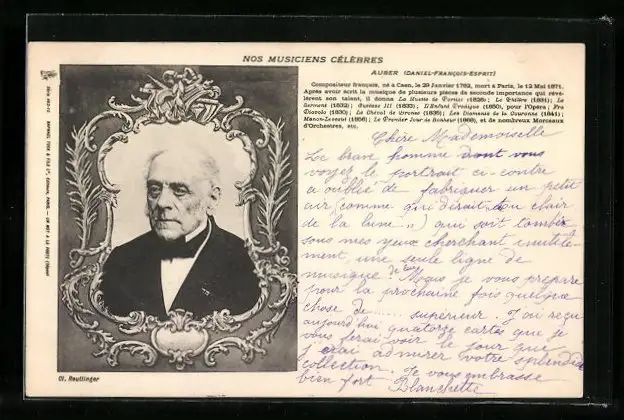 NOS MUSICIENS CÉLÈBRES
AUBER (DANIEL-FRANÇOIS-ESPRIT)
Compositeur français, né à Caen, le 29 Janvier 1782, mort à Paris, le 12 Mai 1871.
Après avoir écrit la musique de plusieurs pièces de seconde importance qui révé-
lèrent son talent, il donna La Muette de Portici (1828); Le Philtre (1831); Le
Serment (1832); Gustave III (1833); L'Enfant Prodigue (1850), pour l'Opéra; Fra
Diavolo (1830); Le Cheval de Bronze (1835); Les Diamants de la Couronne (1841);
Manon Lescaut (1856); Le Premier Jour de Bonheur (1868), et de nombreux Morceaux
d'Orchestres, etc.
Chère Mademoiselle
Le brave homme dont vous
voyez le portrait ci-contre
a oublié de fabriquer un petit
air (comme qui dirait "au clair
de la lune") qui soit tombé
sous mes yeux cherchant inutile-
ment une seule ligne de
musique de lui. Mais je vous prépare
pour la prochaine fois quelque
chose de ...... supérieur. J'ai reçu
aujourd'hui quatorze cartes que je
vous ferai voir le jour que
j'irai admirer votre splendide
collection. Je vous embrasse
bien fort Blanchette
Cl. Reutlinger